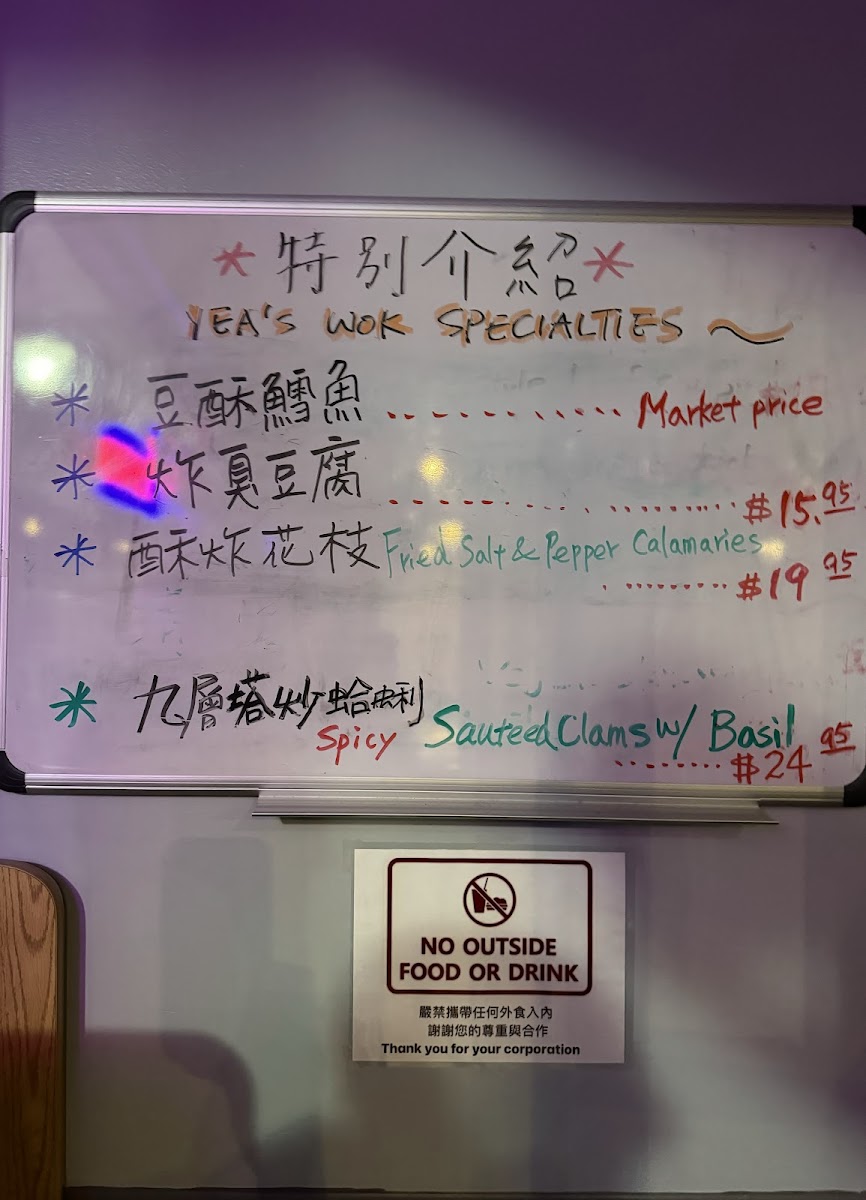 * 特別介紹 *
YEA'S WOK SPECIALTIES ~
* 豆酥鱈魚 .............. Market price
* 炸臭豆腐 .................. $15.95
* 酥炸花枝 Fried Salt & Pepper Calamaries
.......... $19 95
* 九層塔炒蛤蜊 Sauteed Clams w/ Basil
Spicy ......... $24 95
NO OUTSIDE
FOOD OR DRINK
嚴禁攜帶任何外食入內
謝謝您的尊重與合作
Thank you for your corporation